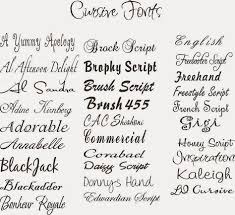 Cursive Fonts
A Yummy Apology
Al Afternoon Delight
Al Samantha
Adine Kirnberg
Adorable
Annabelle
BlackJack
Blackadder
Bonheur Royale
Brock Script
Brophy Script
Brush Script
Brush 455
C.A.C. Shishoni
Commercial
Daisy Script
Donny's Hand
Edwardian Script
English
Freebooter Script
Freehand
Freestyle Script
French Script
Gigi
Honey Script
Inspiration
Kaleigh
LD Cursive